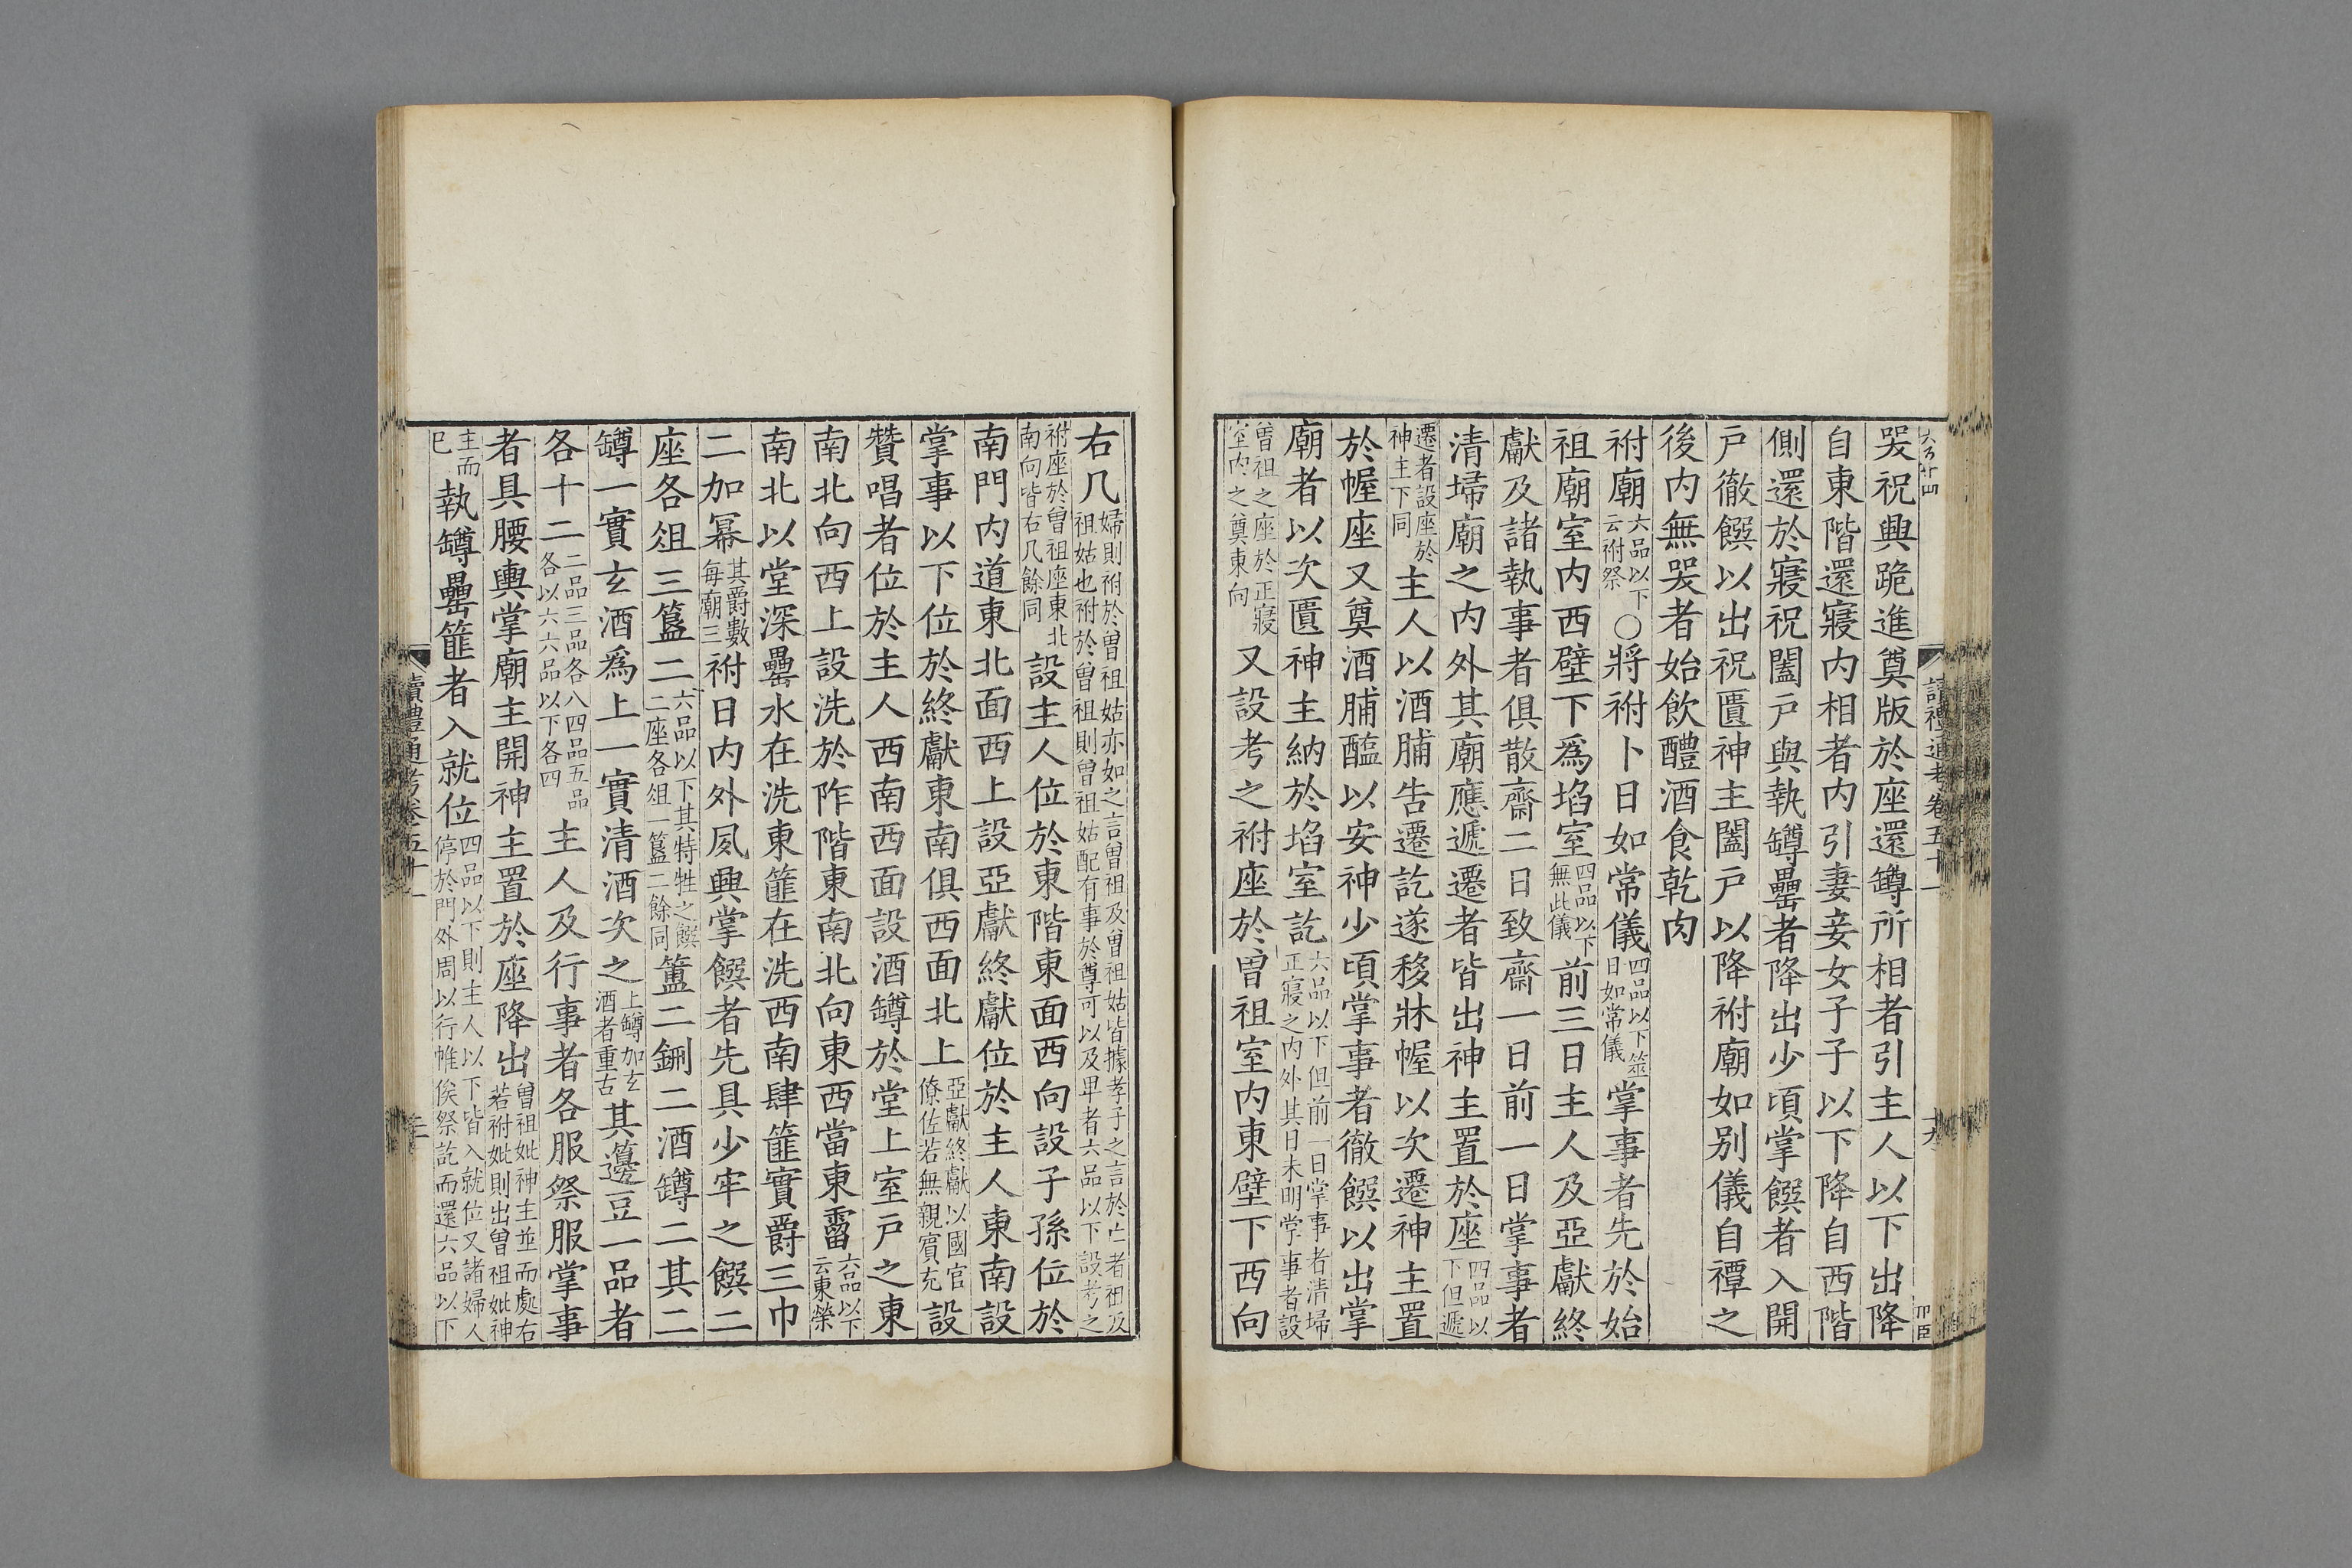 哭祝興跪進奠版於座還罇所相者引主人以下出降
自東階還寢内相者内引妻妾女子子以下降自西階
側還於寢祝闔戸與執罇罍者降出少頃掌饌者入開
戸徹饌以出祝匱神主闔戸以降祔廟如别儀自禫之
後内無哭者始飲醴酒食乾肉
祔廟六品以下云祔祭〇將祔卜日如常儀四品以下筮日如常儀掌事者先於始
祖廟室内西壁下爲埳室四品以下無此儀前三日主人及亞獻終
獻及諸執事者俱散齋二日致齋一日前一日掌事者
清埽廟之内外其廟應遞遷者皆出神主置於座四品以下但遞
遷者設座於神主下同主人以酒脯告遷訖遂移牀幄以次遷神主置
於幄座又奠酒脯醢以安神少頃掌事者徹饌以出掌
廟者以次匱神主納於埳室訖六品以下但前一日掌事者清埽正寢之内外其日未明掌事者設
曽祖之座於正寢室内之奠東向又設考之祔座於曽祖室内東壁下西向
讀禮通考卷五十一
右几婦則祔於曽祖姑亦如之言曽祖及曽祖姑皆據孝子之言於亡者祖及祖姑也祔於曽祖則曽祖姑配有事於尊可以及卑者六品以下設考之
祔座於曽祖座東北南向皆右几餘同設主人位於東階東面西向設子孫位於
南門内道東北面西上設亞獻終獻位於主人東南設
掌事以下位於終獻東南俱西面北上亞獻終獻以國官僚佐若無親賓充設
贊唱者位於主人西南西面設酒罇於堂上室戸之東
南北向西上設洗於阼階東南北向東西當東霤六品以下云東榮
南北以堂深罍水在洗東篚在洗西南肆篚實爵三巾
二加冪其爵數每廟三祔日内外夙興掌饌者先具少牢之饌二
座各俎三簋二六品以下其特牲之饌二座各俎一簋二餘同簠二鉶二酒罇二其二
罇一實玄酒爲上一實清酒次之上罇加玄酒者重古其籩豆一品者
各十二二品三品各八四品五品各以六六品以下各四主人及行事者各服祭服掌事
者具腰輿掌廟主開神主置於座降出曽祖妣神主並而處右若祔妣則出曽祖妣神
主而已執罇罍篚者入就位四品以下則主人以下皆入就位又諸婦人停於門外周以行帷俟祭訖而還六品以下
讀禮通考卷五十一